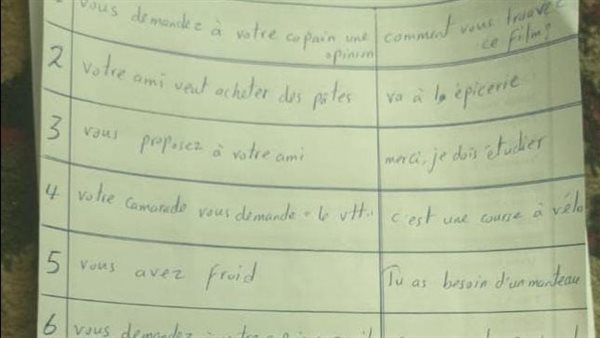 1 vous demandez à votre copain une opinion
comment vous trouvez ce film?
2 votre ami veut acheter des pâtes
va à l'épicerie
3 vous proposez à votre ami
merci, je dois étudier
4 votre camarade vous demande "le vtt..
c'est une course à vélo
5 vous avez froid
Tu as besoin d'un manteau
6 vous demandez à